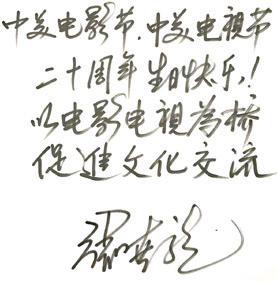 中美电影节,中美电視节
二十周年生日快乐!
以电影电視为橋
促進文化交流